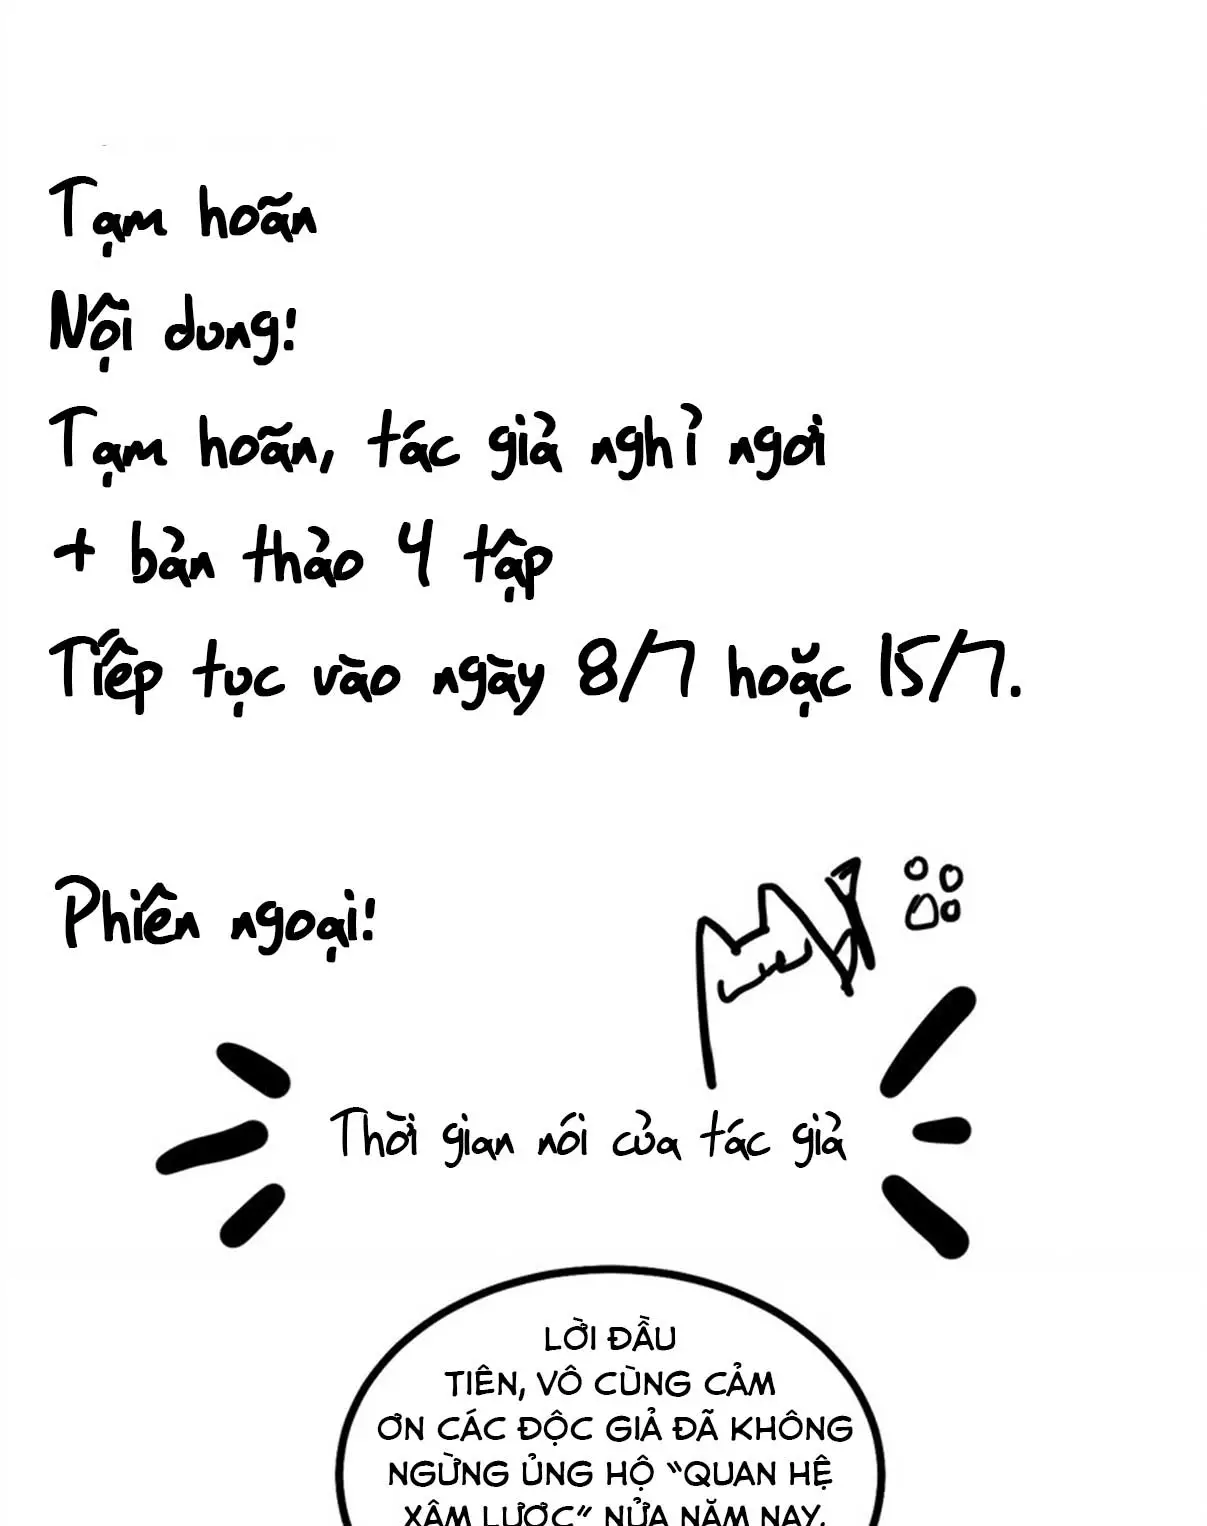 Tạm hoãn
Nội dung!
Tạm hoãn, tác giả nghỉ ngơi
+ bản thảo 4 tập
Tiếp tục vào ngày 8/7 hoặc 15/7.
Phiên ngoại!
Thời gian nói của tác giả
LỜI ĐẦU
TIÊN, VÔ CÙNG CẢM
ƠN CÁC ĐỘC GIẢ ĐÃ KHÔNG
NGỪNG ỦNG HỘ "QUAN HỆ
XÂM LƯỢC" NỬA NĂM NAY.